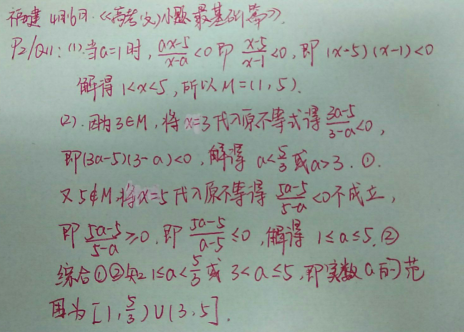 福建 4月6日.《高考(文)小题最基础篇》.
P2/Q11: (1)当a=1时, \frac{ax-5}{x-a}<0 即 \frac{x-5}{x-1}<0, 即 (x-5)(x-1)<0
解得 1<x<5, 所以 M=(1,5).
(2). 因为3∈M, 将x=3代入原不等式得 \frac{3a-5}{3-a}<0,
即(3a-5)(3-a)<0, 解得 a<\frac{5}{3} 或 a>3. ①.
又 5∉M, 将x=5代入原不等得 \frac{5a-5}{5-a}<0不成立,
即 \frac{5a-5}{5-a}≥0. 即 \frac{5a-5}{a-5}≤0, 解得 1≤a≤5. ②
综合①②知 1≤a<\frac{5}{3} 或 3<a≤5, 即实数a的范
围为 [1,\frac{5}{3})∪(3,5].